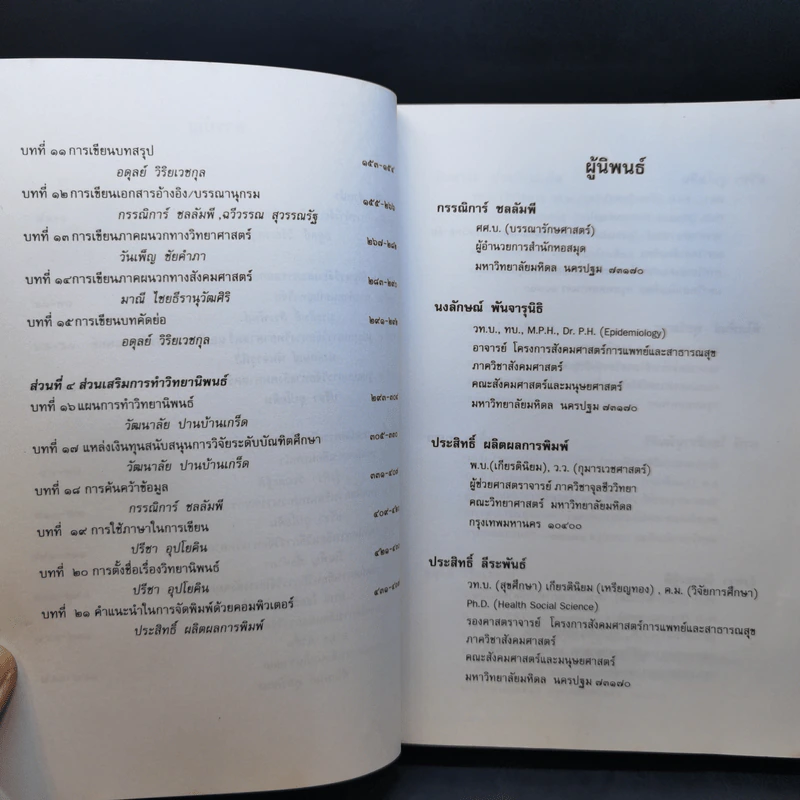 บทที่ ๑๑ การเขียนบทสรุป ๑๕๓-๑๕๔
อดุลย์ วิริยเวชกุล
บทที่ ๑๒ การเขียนเอกสารอ้างอิง/บรรณานุกรม ๑๕๕-๒๖๖
กรรณิการ์ ชลลัมพี ,ฉวีวรรณ สุวรรณรัฐ
บทที่ ๑๓ การเขียนภาคผนวกทางวิทยาศาสตร์
วันเพ็ญ ชัยคำภา
บทที่ ๑๔ การเขียนภาคผนวกทางสังคมศาสตร์
มาณี ไชยธีรานุวัฒศิริ
บทที่ ๑๕ การเขียนบทคัดย่อ
อดุลย์ วิริยเวชกุล
ส่วนที่ ๔ ส่วนเสริมการทำวิทยานิพนธ์
บทที่ ๑๖ แผนการทำวิทยานิพนธ์
วัฒนาลัย ปานบ้านเกร็ด
บทที่ ๑๗ แหล่งเงินทุนสนับสนุนการวิจัยระดับบัณฑิตศึกษา
วัฒนาลัย ปานบ้านเกร็ด
บทที่ ๑๘ การค้นคว้าข้อมูล
กรรณิการ์ ชลลัมพี
บทที่ ๑๙ การใช้ภาษาในการเขียน
ปรีชา อุปโยคิน
บทที่ ๒๐ การตั้งชื่อเรื่องวิทยานิพนธ์
ปรีชา อุปโยคิน
บทที่ ๒๑ คำแนะนำในการจัดพิมพ์ด้วยคอมพิวเตอร์
ประสิทธิ์ ผลิตผลการพิมพ์
ผู้นิพนธ์
กรรณิการ์ ชลลัมพี
ศศ.บ. (บรรณารักษศาสตร์)
ผู้อำนวยการสำนักหอสมุด
มหาวิทยาลัยมหิดล นครปฐม ๗๓๑๗๐
นงลักษณ์ พันจารุนิธิ
วท.บ., ทบ., M.P.H., Dr. P.H. (Epidemiology)
อาจารย์ โครงการสังคมศาสตร์การแพทย์และสาธารณสุข
ภาควิชาสังคมศาสตร์
คณะสังคมศาสตร์และมนุษยศาสตร์
มหาวิทยาลัยมหิดล นครปฐม ๗๓๑๗๐
ประสิทธิ์ ผลิตผลการพิมพ์
พ.บ.(เกียรตินิยม), ว.ว. (กุมารเวชศาสตร์)
ผู้ช่วยศาสตราจารย์ ภาควิชาจุลชีววิทยา
คณะวิทยาศาสตร์ มหาวิทยาลัยมหิดล
กรุงเทพมหานคร ๑๐๔๐๐
ประสิทธิ์ ลีระพันธ์
วท.บ. (สุขศึกษา) เกียรตินิยม (เหรียญทอง) , ค.ม. (วิจัยการศึกษา)
Ph.D. (Health Social Science)
รองศาสตราจารย์ โครงการสังคมศาสตร์การแพทย์และสาธารณสุข
ภาควิชาสังคมศาสตร์
คณะสังคมศาสตร์และมนุษยศาสตร์
มหาวิทยาลัยมหิดล นครปฐม ๗๓๑๗๐